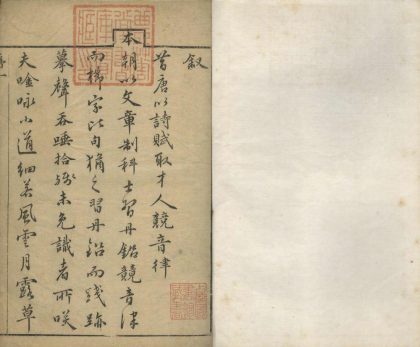 叙
昔唐以詩賦取才人競音律
本朝以文章制科士習丹鉛競音律
而梯宗比句猶之習丹鉛而殘跡
摹聲吞唾拾殘未免識者所咲
夫唫咏小道細若風雲月露草